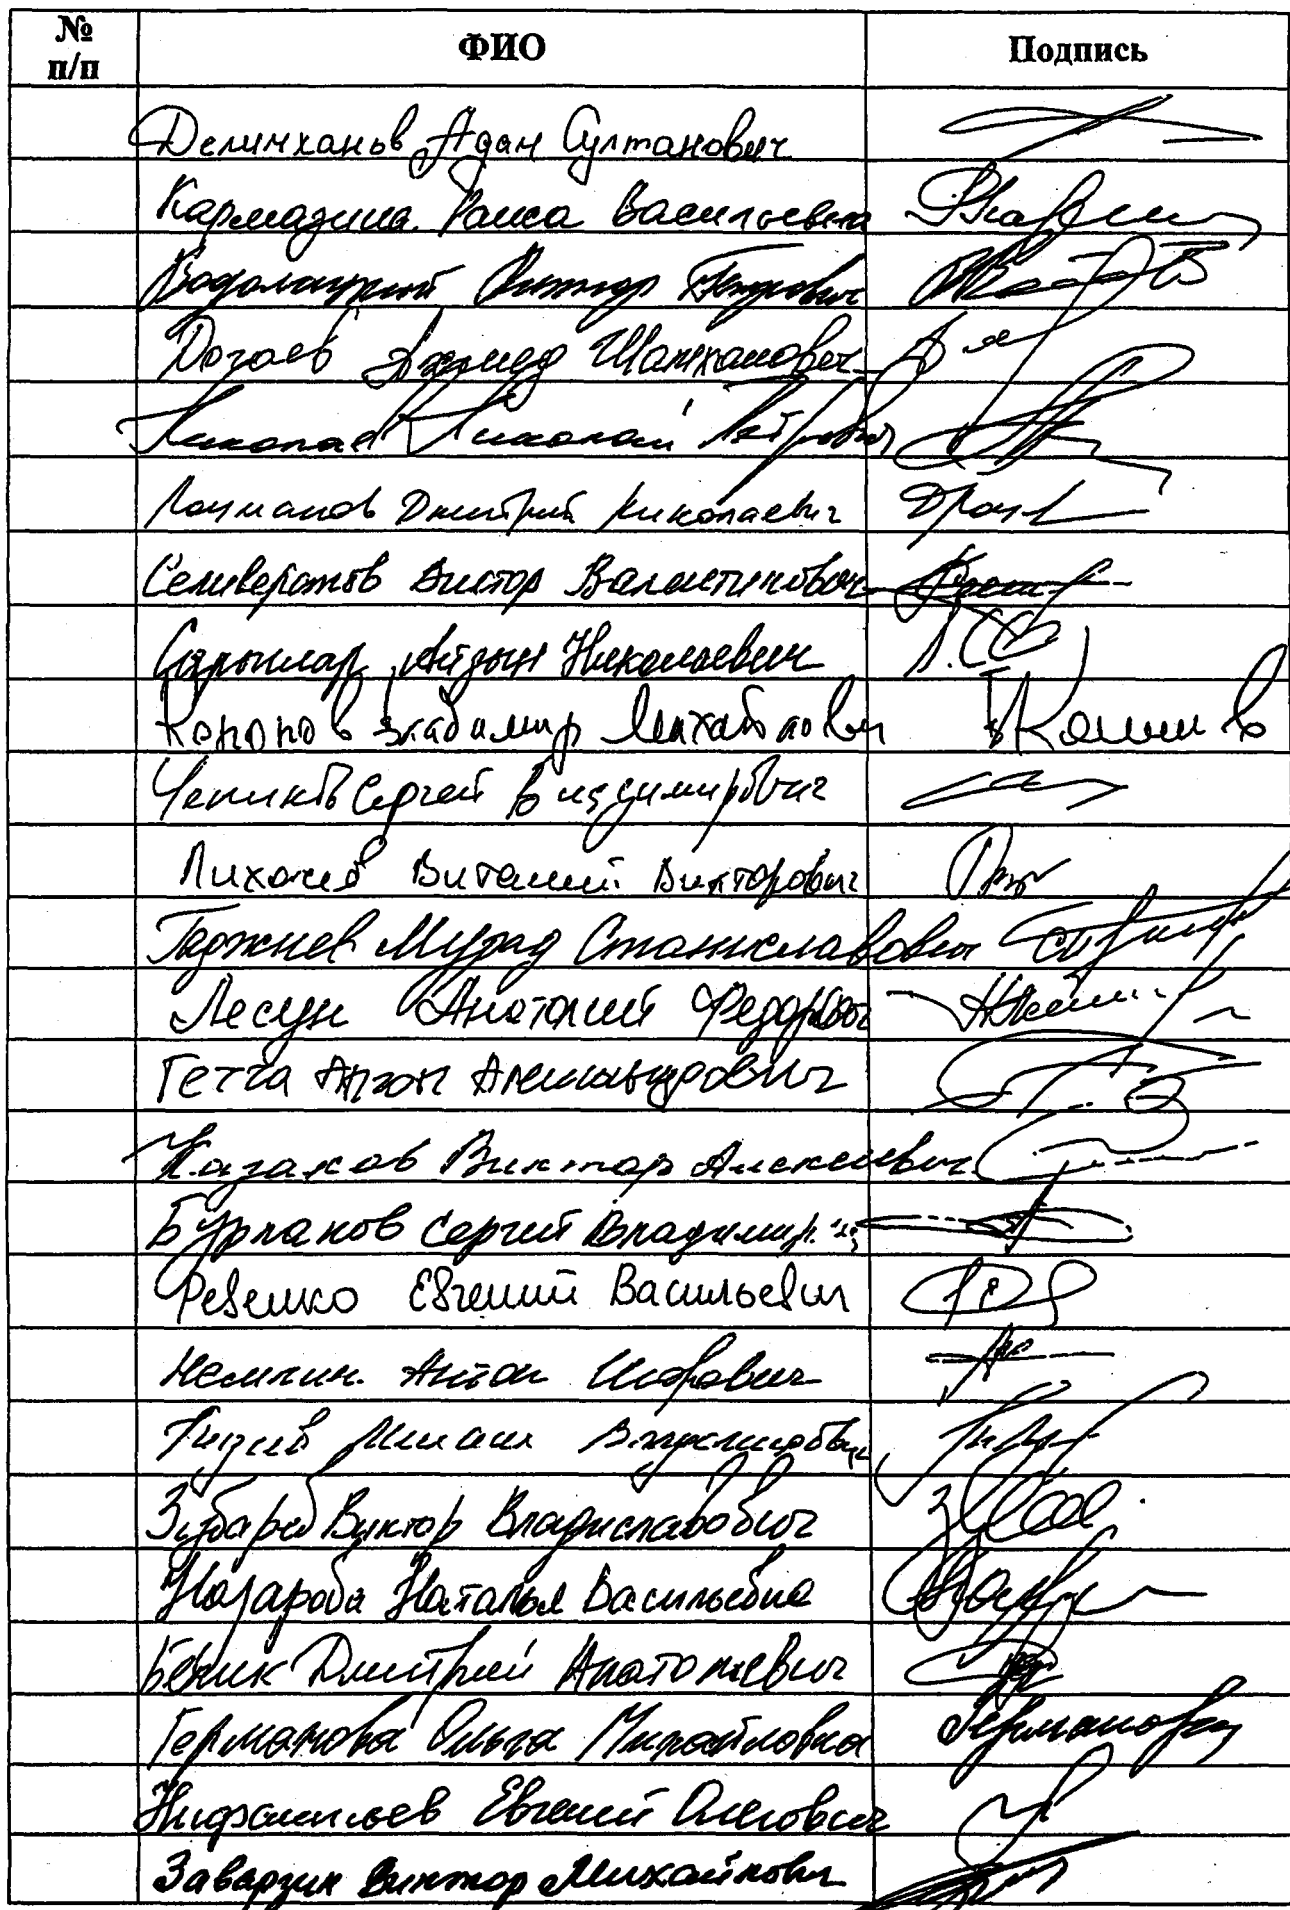 № п/п ФИО Подпись
Делимханов Адам Султанович
Кармазина Раиса Васильевна
Водолацкий Виктор Петрович
Догаев Ахмед Шамханович
Николаев Николай Петрович
Лоцманов Дмитрий Николаевич
Селиверстов Виктор Валентинович
Сарыглар Айдын Николаевич
Кононов Владимир Михайлович
Чепиков Сергей Владимирович
Лихачев Виталий Викторович
Гаджиев Мурад Станиславович
Лесун Анатолий Федорович
Гетта Антон Александрович
Казаков Виктор Алексеевич
Бурлаков Сергей Владимир.
Ревенко Евгений Васильевич
Немкин Антон Игоревич
Кизеев Михаил Владиславович
Зубарев Виктор Владиславович
Назарова Наталья Васильевна
Бевик Дмитрий Анатольевич
Германова Ольга Михайловна Германова
Нифантьев Евгений Олегович
Заварзин Виктор Михайлович